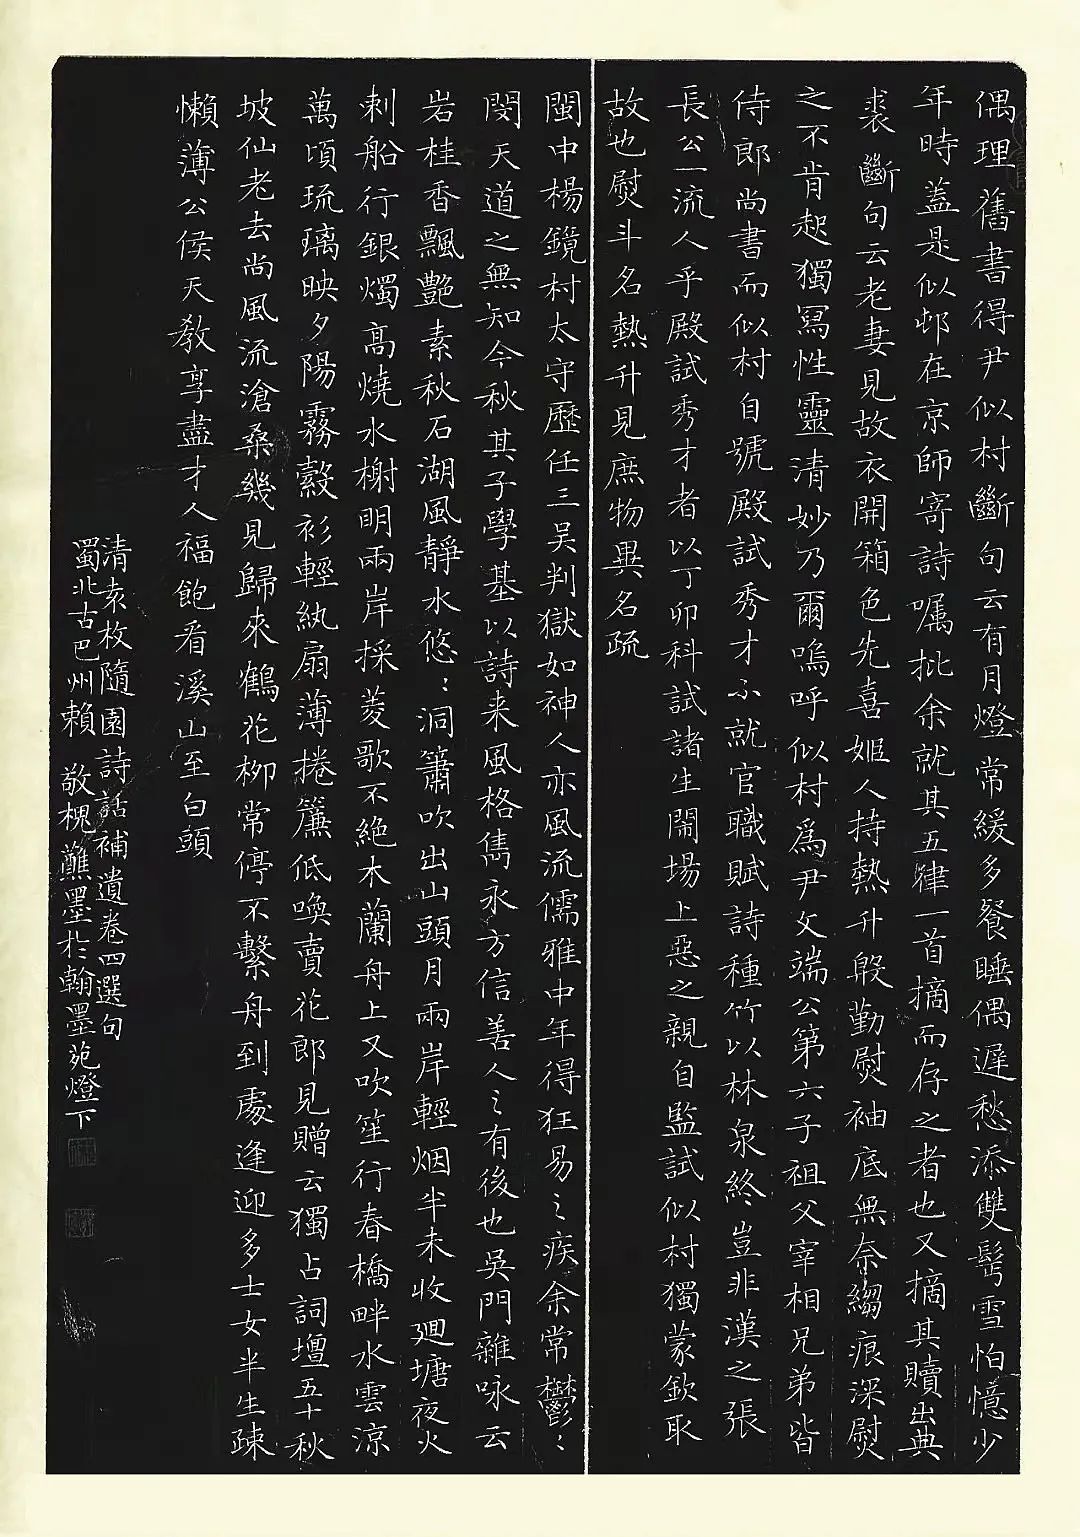 偶理舊書得尹似村斷句云有月燈常緩多餐睡偶遲愁添雙鬢雪怕憶少
年時蓋是似邨在京師寄詩嘱批余就其五律一首摘而存之者也又摘其贖出典
裘斷句云老妻見故衣開箱色先喜姬人持熱升殷勤熨袖底無奈縐痕深熨
之不肯起獨寫性靈清妙乃爾嗚呼似村爲尹文端公第六子祖父宰相兄弟皆
侍郎尚書而似村自號殿試秀才不就官職賦詩種竹以林泉終豈非漢之張
長公一流人乎殿試秀才者以丁卯科試諸生鬧場上惡之親自監試似村獨蒙欽取
故也熨斗名熱升見庶物異名疏
閩中楊鏡村太守歷任三吴判獄如神人亦風流儒雅中年得狂易之疾余常鬱:
閔天道之無知今秋其子學基以詩来風格雋永方信善人之有後也吳門雜咏云
岩桂香飄艷素秋石湖風靜水悠:洞簫吹出山頭月兩岸輕烟半未收廻塘夜火
刺船行銀燭高燒水榭明兩岸採菱歌不絶木蘭舟上又吹笙行春橋畔水雲涼
萬頃琉璃映夕陽霧縠衫輕紈扇薄捲簾低喚賣花郎見贈云獨占詞壇五十秋
坡仙老去尚風流滄桑幾見歸來鶴花柳常停不繫舟到處逢迎多士女半生疎
懶薄公侯天教享盡才人福飽看溪山至白頭
清袁枚隨園詩話補遺卷四選句
蜀北古巴州賴敬槐蘸墨於翰墨苑燈下